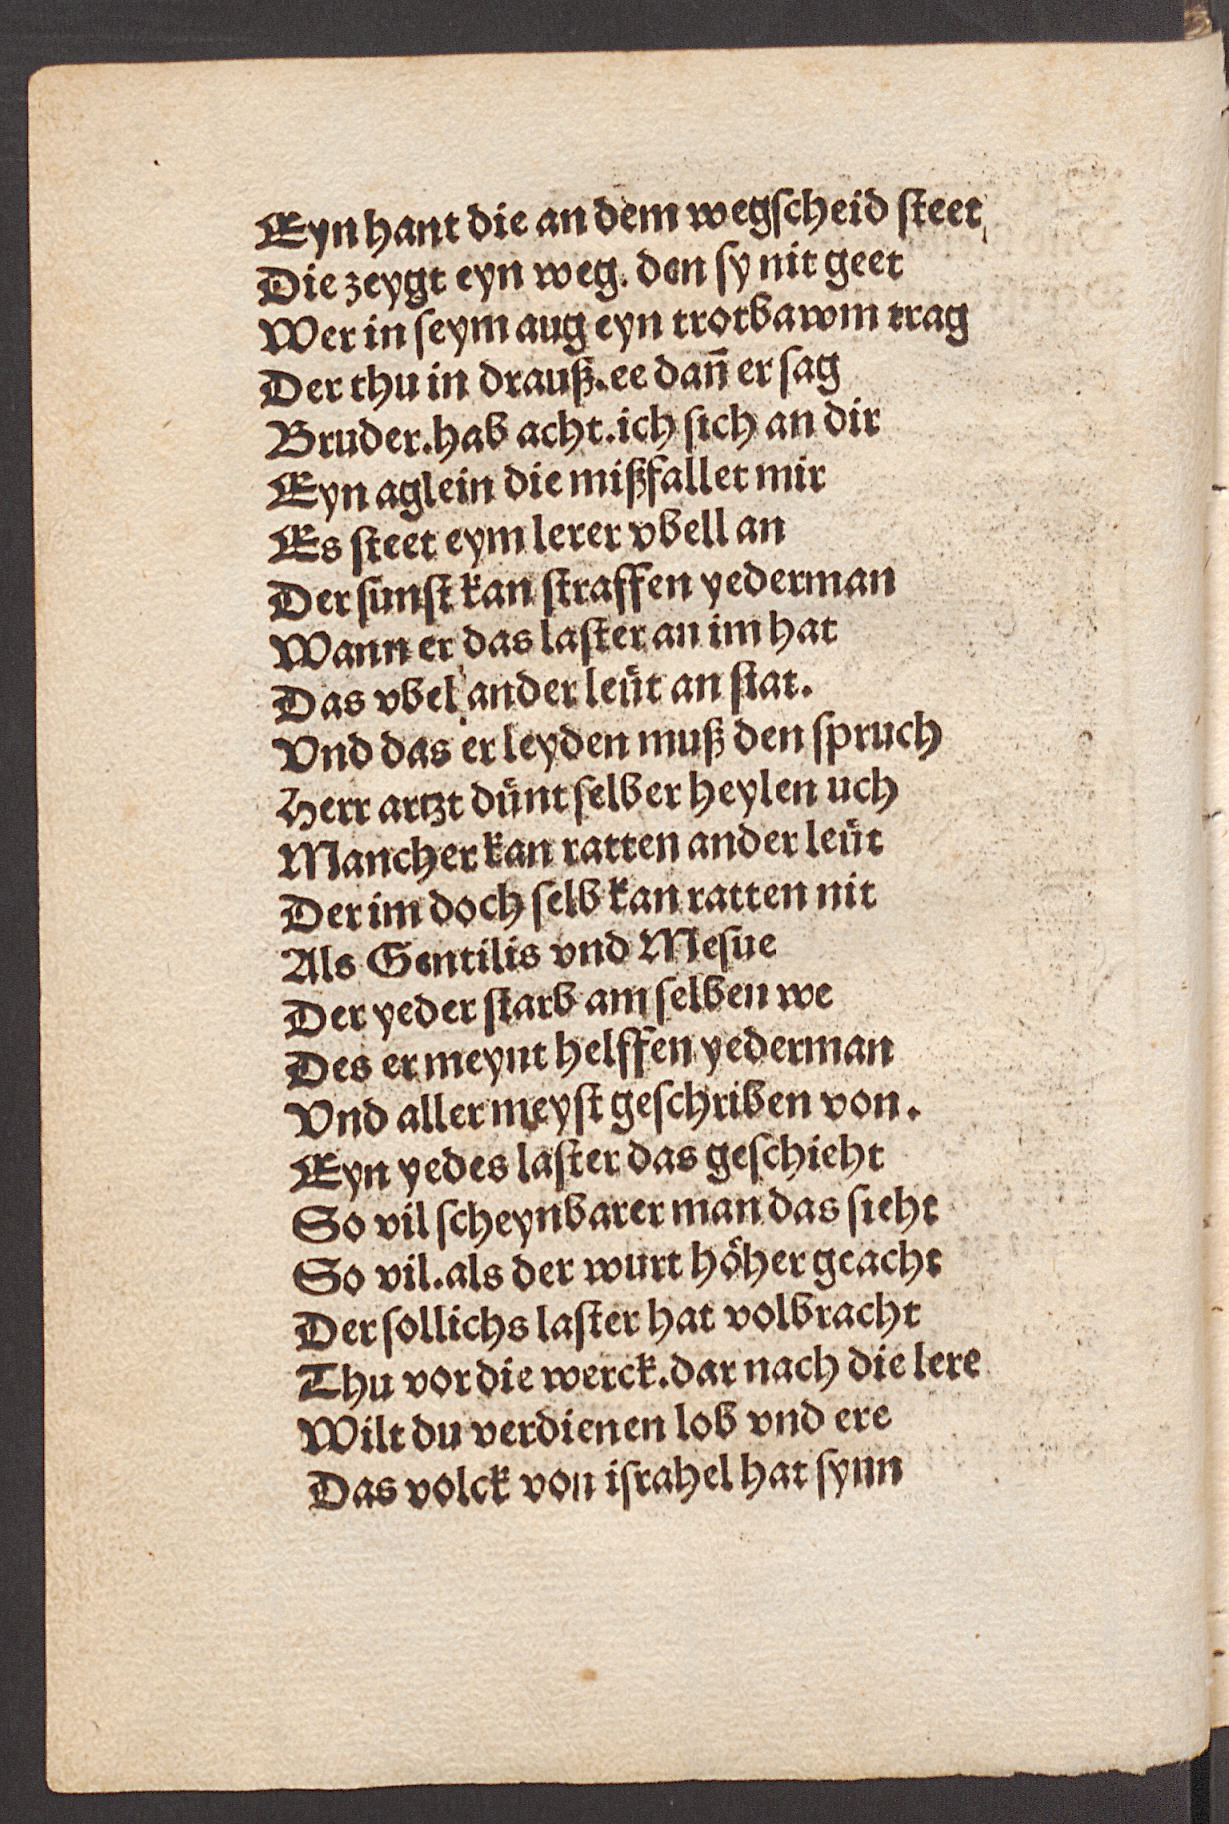 Eyn hant die an dem wegſcheid ſteet
Die zeygt eyn weg. den ſy nit geet
Wer in ſeym aug eyn trotbawm trag
Der thu in drauß. ee dañ er ſag
Bruder. hab acht. ich ſich an dir
Eyn aglein die mißfallet mir
Es ſteet eym lerer vbell an
Der ſunſt kan ſtraffen yederman
Wann er das laſter an im hat
Das vbel ander leüt an ſtat.
Vnd das er leyden muß den ſpruch
Herr artzt dünt ſelber heylen uch
Mancher kan ratten ander leüt
Der im doch ſelb kan ratten nit
Als Gentilis vnd Meſue
Der yeder ſtarb am ſelben we
Des er meynt helffen yederman
Vnd aller meyſt geſchriben von.
Eyn yedes laſter das geſchieht
So vil ſcheynbarer man das ſieht
So vil. als der wurt höher geacht
Der ſollichs laſter hat volbracht
Thu vor die werck. dar nach die lere
Wilt du verdienen lob vnd ere
Das volck von iſrahel hat ſynn